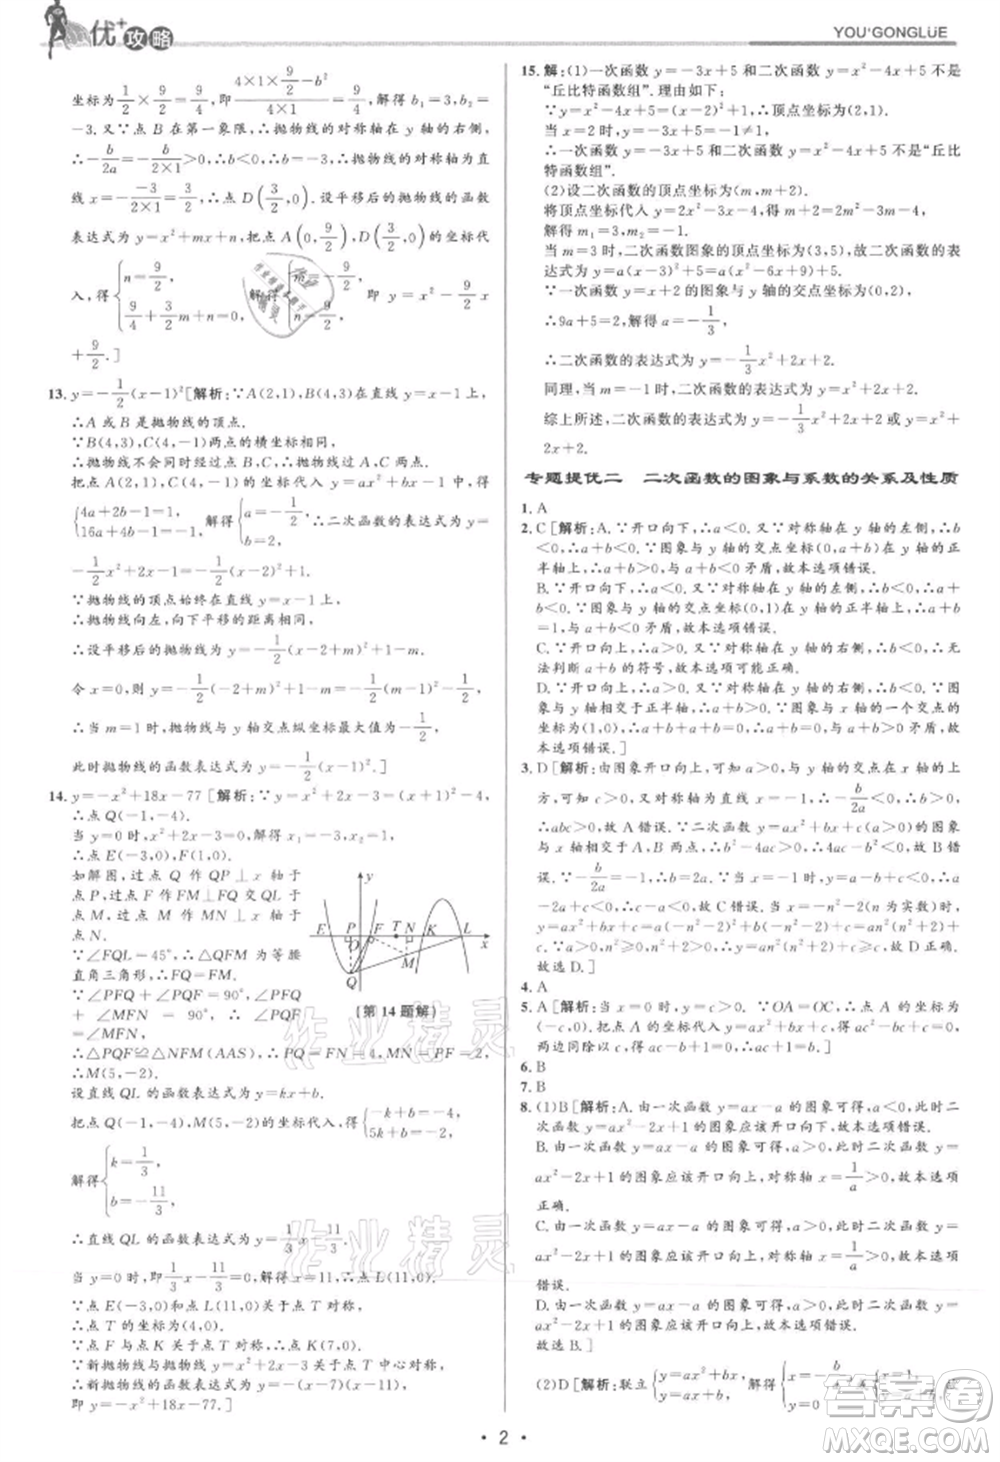 优+攻略
YOU'GONGLÜE
坐标为 1/2×9/2=9/4,即 (4×1×9/2−b²)/(4×1)=9/4,解得 b₁=3,b₂=
−3. 又∵点 B 在第一象限,∴抛物线的对称轴在 y 轴的右侧,
∴−b/2a=−b/(2×1)>0,∴b<0,∴b=−3,∴抛物线的对称轴为直
线 x=3/(2×1)=3/2,∴点 D(3/2,0). 设平移后的抛物线的函数
表达式为 y=x²+mx+n,把点 A(0,9/2),D(3/2,0)的坐标代
入,得{n=9/2, 9/4+3/2m+n=0, 解得{m=−9/2, n=9/2, 即 y=x²−9/2x
+9/2.]
13. y=−1/2(x−1)²[解析:∵A(2,1),B(4,3)在直线 y=x−1 上,
∴A 或 B 是抛物线的顶点.
∵B(4,3),C(4,−1)两点的横坐标相同,
∴抛物线不会同时经过 B,C 点,∴抛物线经过 A,C 两点.
把点 C(4,−1),A(2,1)的坐标代入 y=ax²+bx−1,得
{4a+2b−1=1, 16a+4b−1=−1, 解得{a=−1/2, b=2, ∴二次函数的表达式为 y=
−1/2x²+2x−1.
∵抛物线的顶点始终在直线 y=x−1 上,
∴抛物线向左、向下平移的距离相同,
∴设平移后的抛物线为 y=−1/2(x−2+m)²+1−m.
令 x=0,则 y=−1/2(−2+m)²+1−m=−1/2(m−1)²−1/2,
∴当 m=1 时,抛物线与 y 轴交点纵坐标最大值为−1/2,
此时抛物线的函数表达式为 y=−1/2(x−1)².]
14. y=−x²+18x−77 [解析:∵y=x²+2x−3=(x+1)²−4,
∴点 Q(−1,−4).
当 y=0 时,即 x²+2x−3=0,解得 x₁=−3,x₂=1,
∴点 E(−3,0),点 F(1,0).
如解图,过点 Q 作 QP⊥x 轴于
点 P,过点 F 作 FM⊥FQ 交 QL 于
点 M,过点 M 作 MN⊥x 轴于
点 N.
∵∠FQL=45°,∴△FQM 为等腰
直角三角形,∴FQ=FM.
∵∠PFQ+∠PQF=90°,∠PFQ
+∠MFN=90°,
∴∠PQF=∠MFN,
∴△PQF≌△NFM(AAS),∴PQ=FN=4,MN=PF=2,
∴M(5,−2).
设直线 QL 的函数表达式为 y=kx+b.
把点 Q(−1,−4),M(5,−2)的坐标代入,得{−k+b=−4, 5k+b=−2,
解得{k=1/3, b=−11/3,
∴直线 QL 的函数表达式为 y=1/3x−11/3.
当 y=0 时,即 1/3x−11/3=0,解得 x=11,∴点 L(11,0).
∵点 E(−3,0)和点 L(11,0)关于点 T 对称,
∴点 T 的坐标为(4,0).
∵点 F 与点 K 关于点 T 对称,∴点 K(7,0).
∵新抛物线与抛物线 y=x²+2x−3 关于点 T 中心对称,
∴新抛物线的函数表达式为 y=−(x−7)(x−11),
即 y=−x²+18x−77.]
y
E P O F T N K L x
M
Q
(第 14 题解)
15. 解:(1)一次函数 y=−3x+5 和二次函数 y=x²−4x+5 不是
“丘比特函数组”. 理由如下:
∵y=x²−4x+5=(x−2)²+1,∴顶点坐标为(2,1).
当 x=2 时,y=−3x+5=−1≠1,
∴一次函数 y=−3x+5 和二次函数 y=x²−4x+5 不是“丘比
特函数组”.
(2)设二次函数的顶点坐标为(m,m+2).
将顶点坐标代入 y=2x²−3x−4,得 m+2=2m²−3m−4,
解得 m₁=3,m₂=−1.
当 m=3 时,二次函数图象的顶点坐标为(3,5),故二次函数的表
达式为 y=a(x−3)²+5.
∵一次函数 y=x+2 的图象与 y 轴的交点坐标为(0,2),
∴9a+5=2,解得 a=−1/3,
∴二次函数的表达式为 y=−1/3x²+2x+2.
同理,当 m=−1 时,二次函数的表达式为 y=x²+2x+2.
综上所述,二次函数的表达式为 y=−1/3x²+2x+2 或 y=x²+
2x+2.
专题提优二 二次函数的图象与系数的关系及性质
1. A
2. C [解析:A. ∵开口向下,∴a<0. 又∵对称轴在 y 轴的左侧,∴b
<0,∴a+b<0. ∵图象与 y 轴的交点坐标为(0,1)在 y 轴的正
半轴上,∴a+b=1>0,与 a+b<0 矛盾,故本选项错误.
B. ∵开口向下,∴a<0. ∵对称轴在 y 轴的左侧,∴b<0,∴a+b
<0. 又∵图象与 y 轴的交点坐标(0,1)在 y 轴的正半轴上,∴a+b=
1>0,与 a+b<0 矛盾,故本选项错误.
C. ∵开口向上,∴a>0. ∵对称轴在 y 轴的右侧,∴b<0,∴无
法判断 a+b 的符号,故本选项可能正确.
D. ∵开口向上,∴a>0. ∵对称轴在 y 轴的左侧,∴b>0,∴a+b
>0,∴图象交于正半轴,故 a>0. ∵图象与 x 轴的一个交点
的坐标为(1,0),∴a+b+a+b=0,∴a+b=0,与 a+b>0 矛
盾,故本选项错误.]
3. D [解析:∵图象开口向上,∴a>0. ∵图象与 y 轴的交点在 x 轴的上
方,可知 c>0. 又∵对称轴为直线 x=−1,∴−b/2a<0,∴b>0,
∴abc>0,故 A 错误. ∵二次函数 y=ax²+bx+c(a≠0)的图象
与 x 轴有两个交点,∴b²−4ac>0,∴4ac−b²<0,故 B 错
误. ∵−b/2a=−1,∴b=2a. ∵当 x=−1 时,y=a−b+c<0,∴a−
2a+c<0,∴c−a<0,故 C 错误. 当 x=−n²−2(n 为实数)时,y=
ax²+bx+c=a(−n²−2)²+b(−n²−2)+c=an²(n²+2)+
c. ∵a>0,n²≥0,n²+2>0,∴y=an²(n²+2)+c≥c,故 D 正
确.]
4. A
5. A [解析:∵当 x=0 时,y=c,∴C(0,c). ∵OA=OC,∴点 A 的坐标为
(−c,0),∴当 x=−c 时,y=0,即 ac²−bc+c=0. ∵c≠0,∴
两边同除以 c,得 ac−b+1=0,∴ac+1=b.]
6. B
7. B
8. (1)B [解析:A. 由一次函数 y=ax−a 的图象可得 a<0,此时二
次函数 y=ax²−2x+1 的图象应该开口向下,故本选项错误.
B. 由一次函数 y=ax−a 的图象可得 a>0,此时二次函数 y=
ax²−2x+1 的图象应该开口向上,对称轴 x=1/a>0,故本选项
正确.
C. 由一次函数 y=ax−a 的图象可得 a>0,此时二次函数 y=
ax²−2x+1 的图象应该开口向上,对称轴 x=1/a>0,故本选项
错误.
D. 由一次函数 y=ax−a 的图象可得 a<0,此时二次函数 y=
ax²−2x+1 的图象应该开口向下,故本选项错误.
故选 B.]
(2)D [解析:联立{y=ax²+bx, y=ax+b, 解得{x=−b/a, y=0 或{x=1, y=a+b.
· 2 ·
作业精灵
作业精灵
答案圈
MXQE.COM